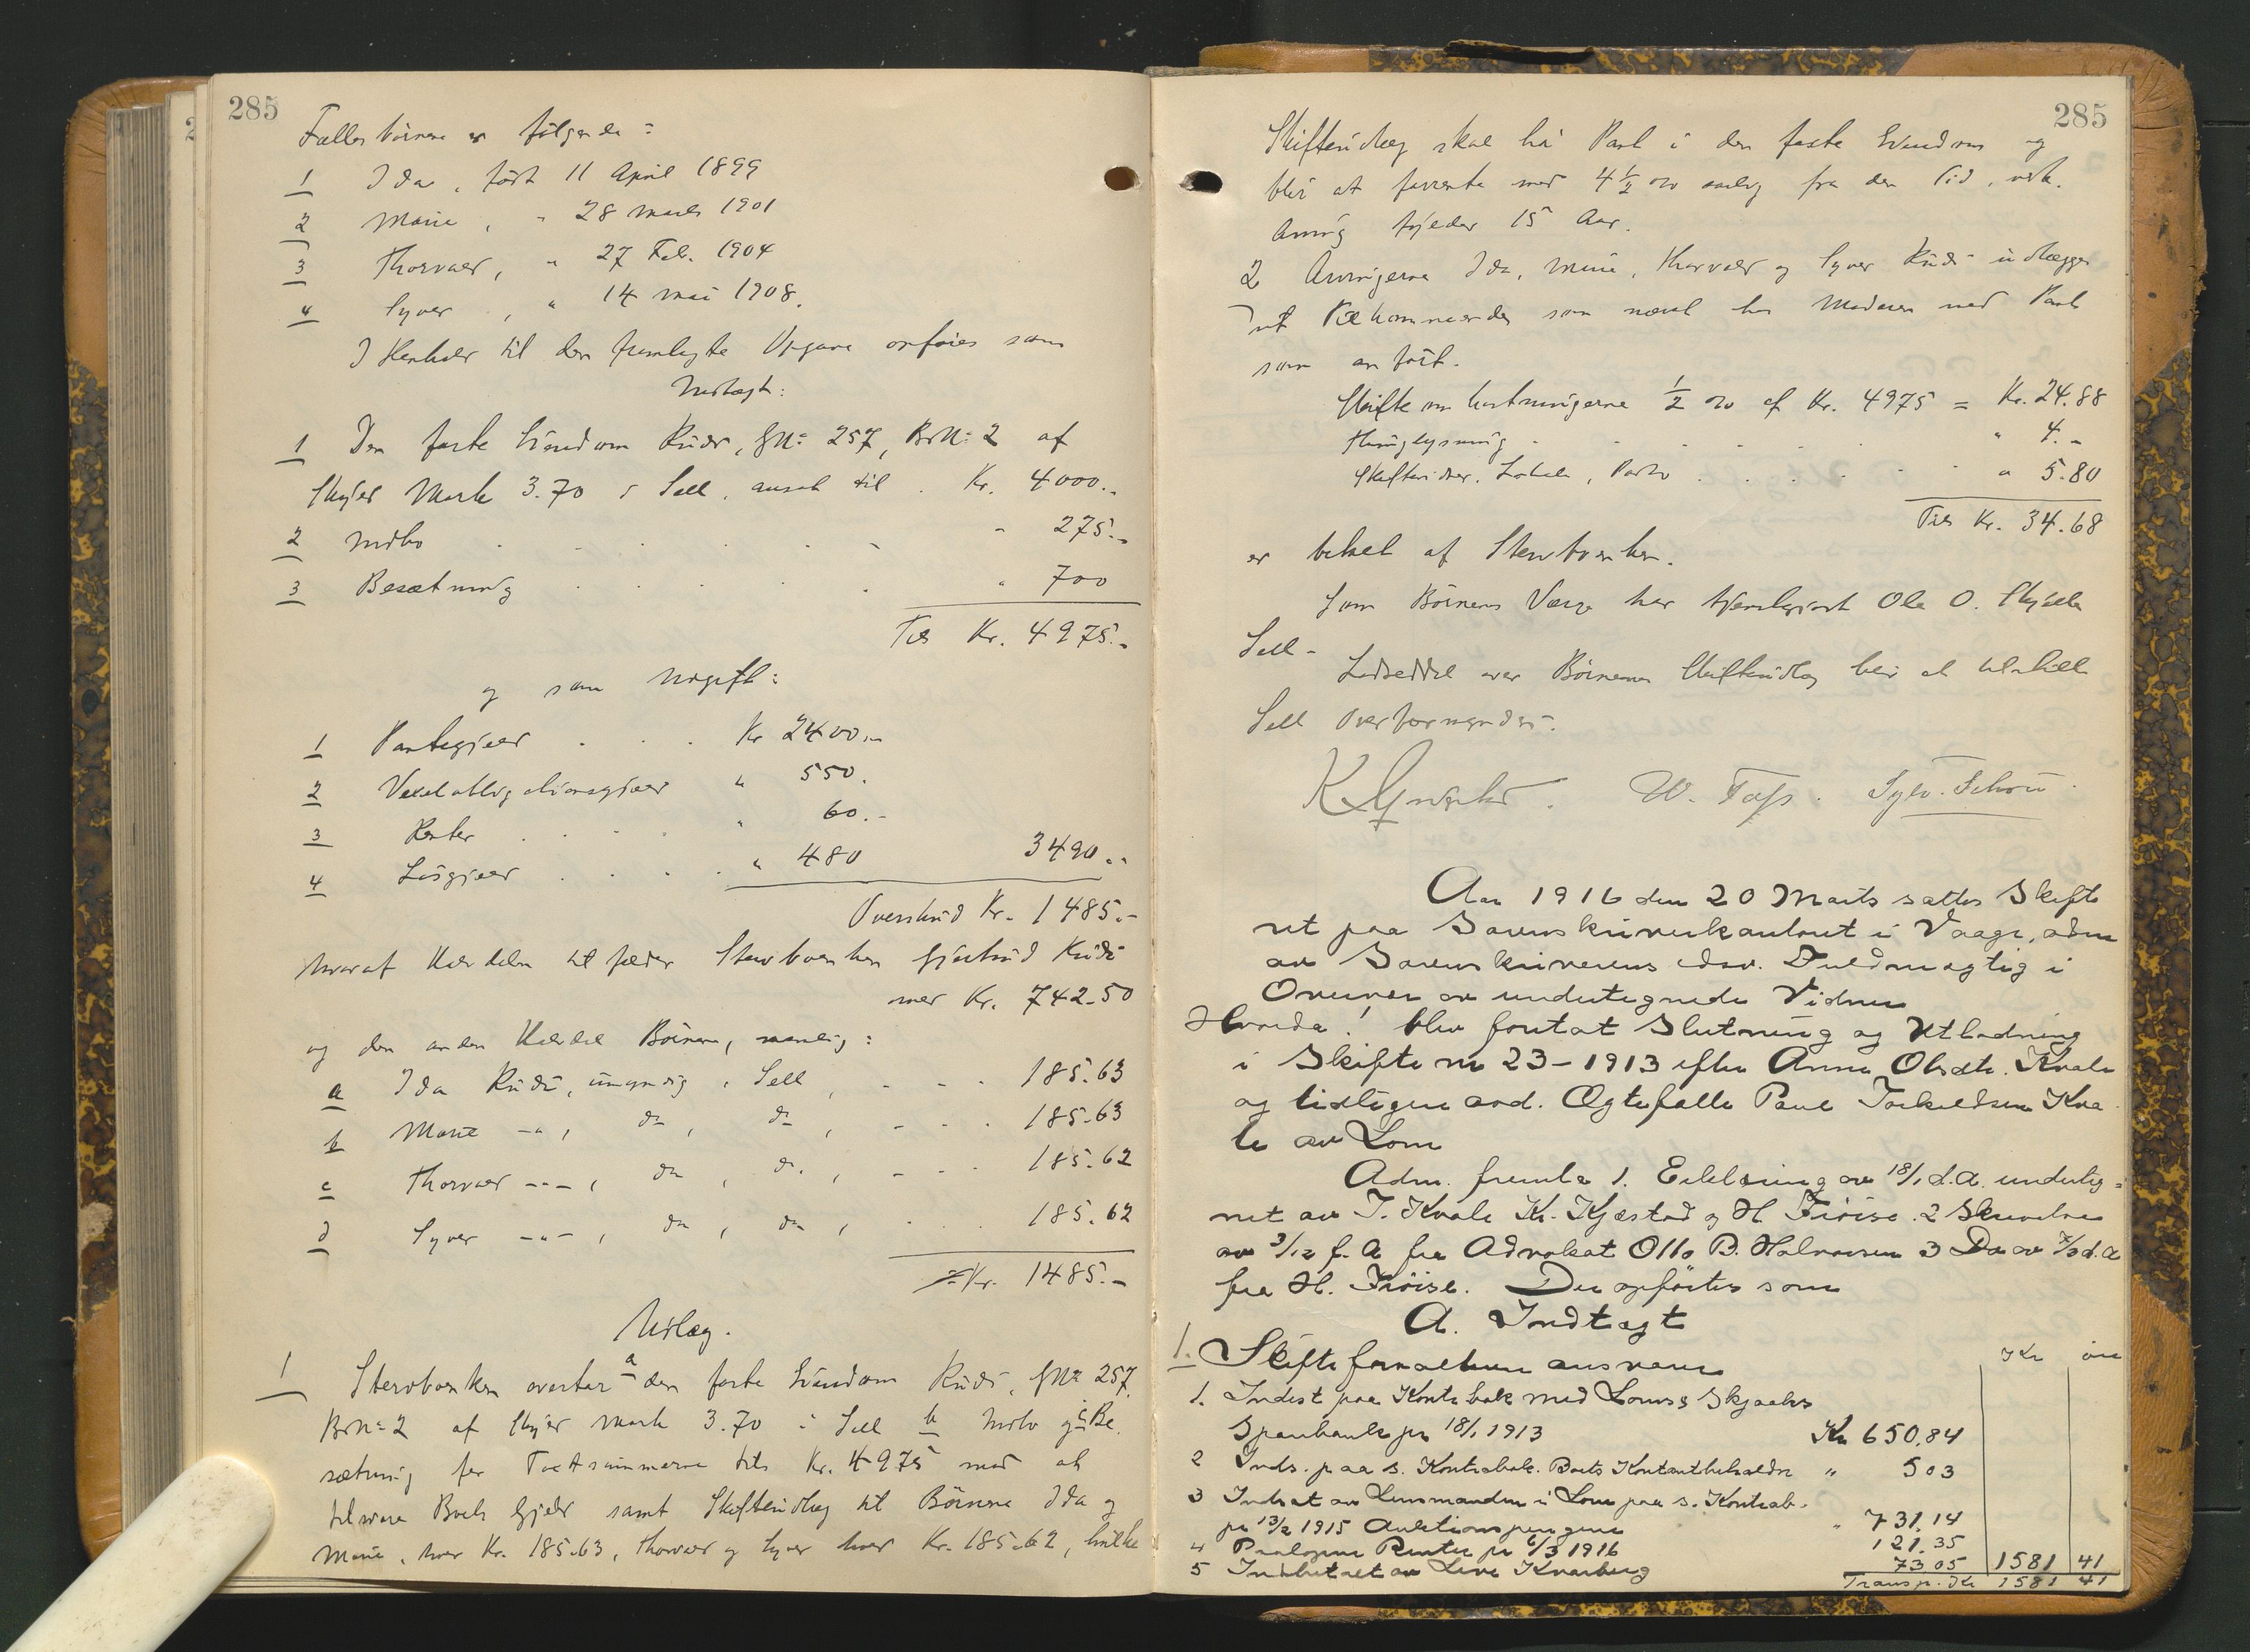 285
Fællesbörnene er følgende:
1 Ida, født 11 April 1899
2 Marie, " 28 Marts 1901
3 Thorvald, " 27 Feb. 1904
4 Syver, " 14 Mai 1908.
I Henhold til den fremlagte Opgave opføies som
Indtægt:
1 Den faste Eiendom Ruds, GNo 257, BrNo 2 af
Skyld Mark 3.70 i Sell, ansat til . Kr. 4000.-
2 Indbo . . . . . . " 275.-
3 Besætning . . . . . " 700
Tils Kr. 4975.-
og som Udgift:
1 Pantegjæld . . . Kr 2400.-
2 Vexelobligationsgjæld " 550.
3 Renter . . . . " 60.-
4 Løsgjæld . . . . " 480 3490.-
Overskud Kr. 1485.-
hvoraf Halvdelen tilfalder Stervboenken Gjertrud Rud
med Kr. 742.50
og den anden Halvdel Börnene, nemlig:
a Ida Rud, umyndig, Sell, - - - 185.63
b Marie -"-, do, do, - - - 185.63
c Thorvald -"-, do, do, - - - 185.62
d Syver -"-, do, do, . . . 185.62
Kr. 1485.-
Udlæg.
1 Stervboenken overtar a den faste Eiendom Ruds, GNo 257,
BrNo 2 af Skyld Mark 3.70 i Sell b Indbo og c Be-
sætning for Taxtsummerne tils Kr. 4975 mod at
tilsvare Boets Gjæld samt Skifteudlæg til Börnene Ida og
Marie, hver Kr. 185.63, Thorvald og Syver hver Kr. 185.62, hvilke
285
Skifteudlæg skal ha Pant i den faste Eiendom og
blir at forrente med 4 1/2 % aarlig fra den Tid,
Arving fylder 15 Aar.
2 Arvingerne Ida, Marie, Thorvald og Syver Rud udlægges
det Tilkommende som nævnt hos Moderen med Pant
som anført.
Skifteomkostningerne 1/2 % af Kr. 4975 = Kr. 24.88
Thinglysning . . . . . . " 4.-
Skiftevidner, Lokale, Porto . . . . . " 5.80
Tils Kr. 34.68
er betalt af Stervboenken.
Som Börnenes Værge har tjenstgjort Ole O. Skjælle
Sell.
Lodseddel over Börnenes Skifteudlæg blir at tilstille
Sell Overformynderi.
W. Fass. Sylv. Schou.
Aar 1916 den 20 Marts sattes Skifte
ret paa Sorenskriverkontoret i Vaage, adm
av Sorenskriverens edsv. Fuldmægtig i
Overvær av undertegnede Vidner
Hvorda! blev foretat Slutning og Utlodning
i Skifte nr 23-1913 efter Anne Olsdtr. Kvale
og tidligere avd. Ægtefælle Paul Torkeldsen Kva-
le av Lom
Adm. fremla 1. Erklæring av 18/1 d.A. underteg-
net av T. Kvale Kr. Kjæstad og H Frøise. 2 Skrivelse
av 3/12 f. A fra Advokat Otto B. Halvorsen 3 Do av 7/3 d.A
fra H. Frøise. Der opførtes som
A. Indtægt
Kr øre
1. Skifteforvalteren ansvarer
1. Indest paa Kontrabok med Lom & Skjaaks
Sparebank pr 18/1 1913 Kr 650.84
2 Inds. paa s. Kontrabok. Boets Kontantbeholdn " 503
3 Indsat av Lensmanden i Lom paa s. Kontrab.
pr 13/2 1915 Auktionspengene " 731.14
4 Paaløpne Renter pr 6/3 1916 121.35
5 Indbetalt av Live Kvarberg 73.05 1581 41
Transp. Kr 1581 41